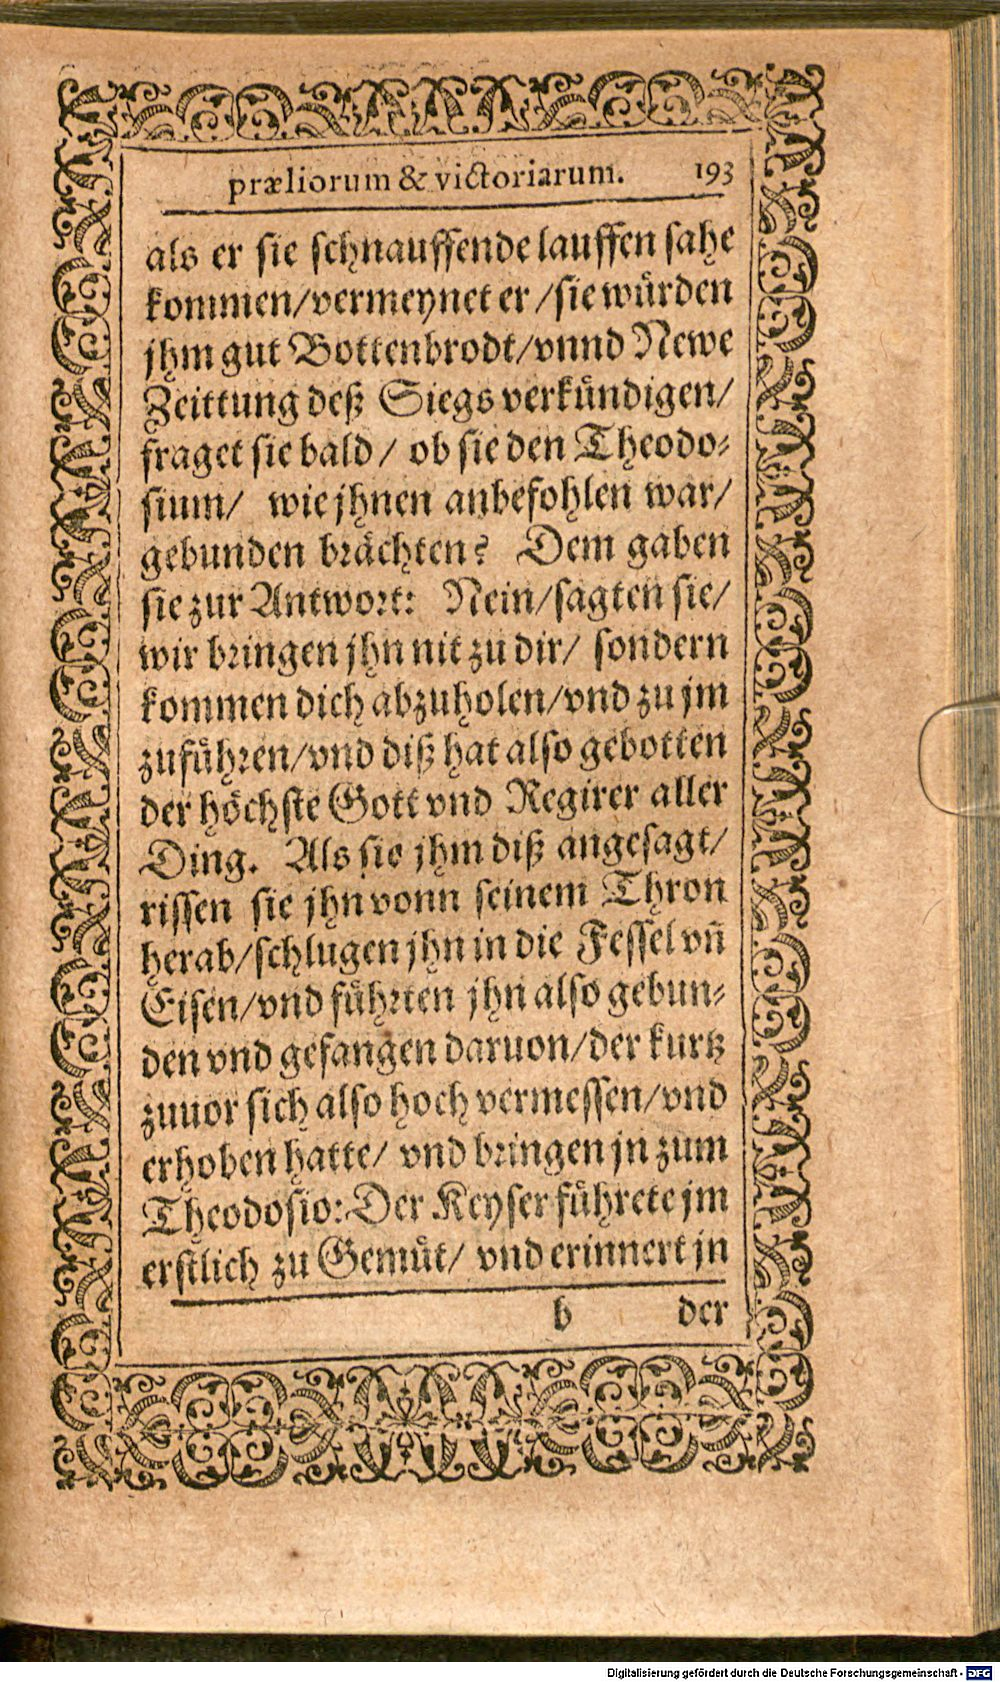 præliorum & victoriarum. 193
als er sie schnauffende lauffen sahe
kommen/vermeynet er/sie würden
jhm gut Bottenbrodt/vnnd Newe
Zeittung deß Siegs verkündigen/
fraget sie bald/ ob sie den Theodo-
sium/ wie jhnen anbefohlen war/
gebunden brächten? Dem gaben
sie zur Antwort: Nein/sagten sie/
wir bringen jhn nit zu dir/ sondern
kommen dich abzuholen/vnd zu jm
zuführen/vnd diß hat also gebotten
der höchste Gott vnd Regirer aller
Ding. Als sie jhm diß angesagt/
rissen sie jhn vonn seinem Thron
herab/schlugen jhn in die Fessel vñ
Eisen/vnd führten jhn also gebun-
den vnd gefangen daruon/der kurtz
zuuor sich also hoch vermessen/vnd
erhoben hatte/ vnd bringen jn zum
Theodosio: Der Keyser führete jm
erstlich zu Gemüt/ vnd erinnert jn
b der
Digitalisierung gefördert durch die Deutsche Forschungsgemeinschaft - DFG